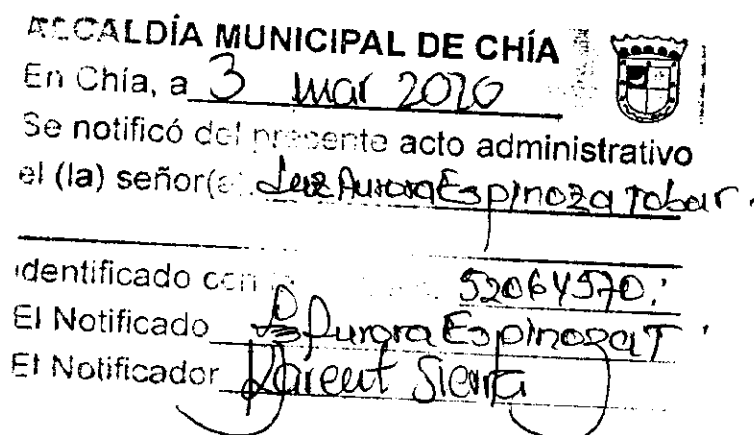 ALCALDÍA MUNICIPAL DE CHÍA
En Chía, a 3 mar 2020
Se notificó del presente acto administrativo
el (la) señor(a) Luz Aurora Espinoza Tobar.
identificado con 52064570.
El Notificado Aurora Espinoza T
El Notificador Karent Sierra